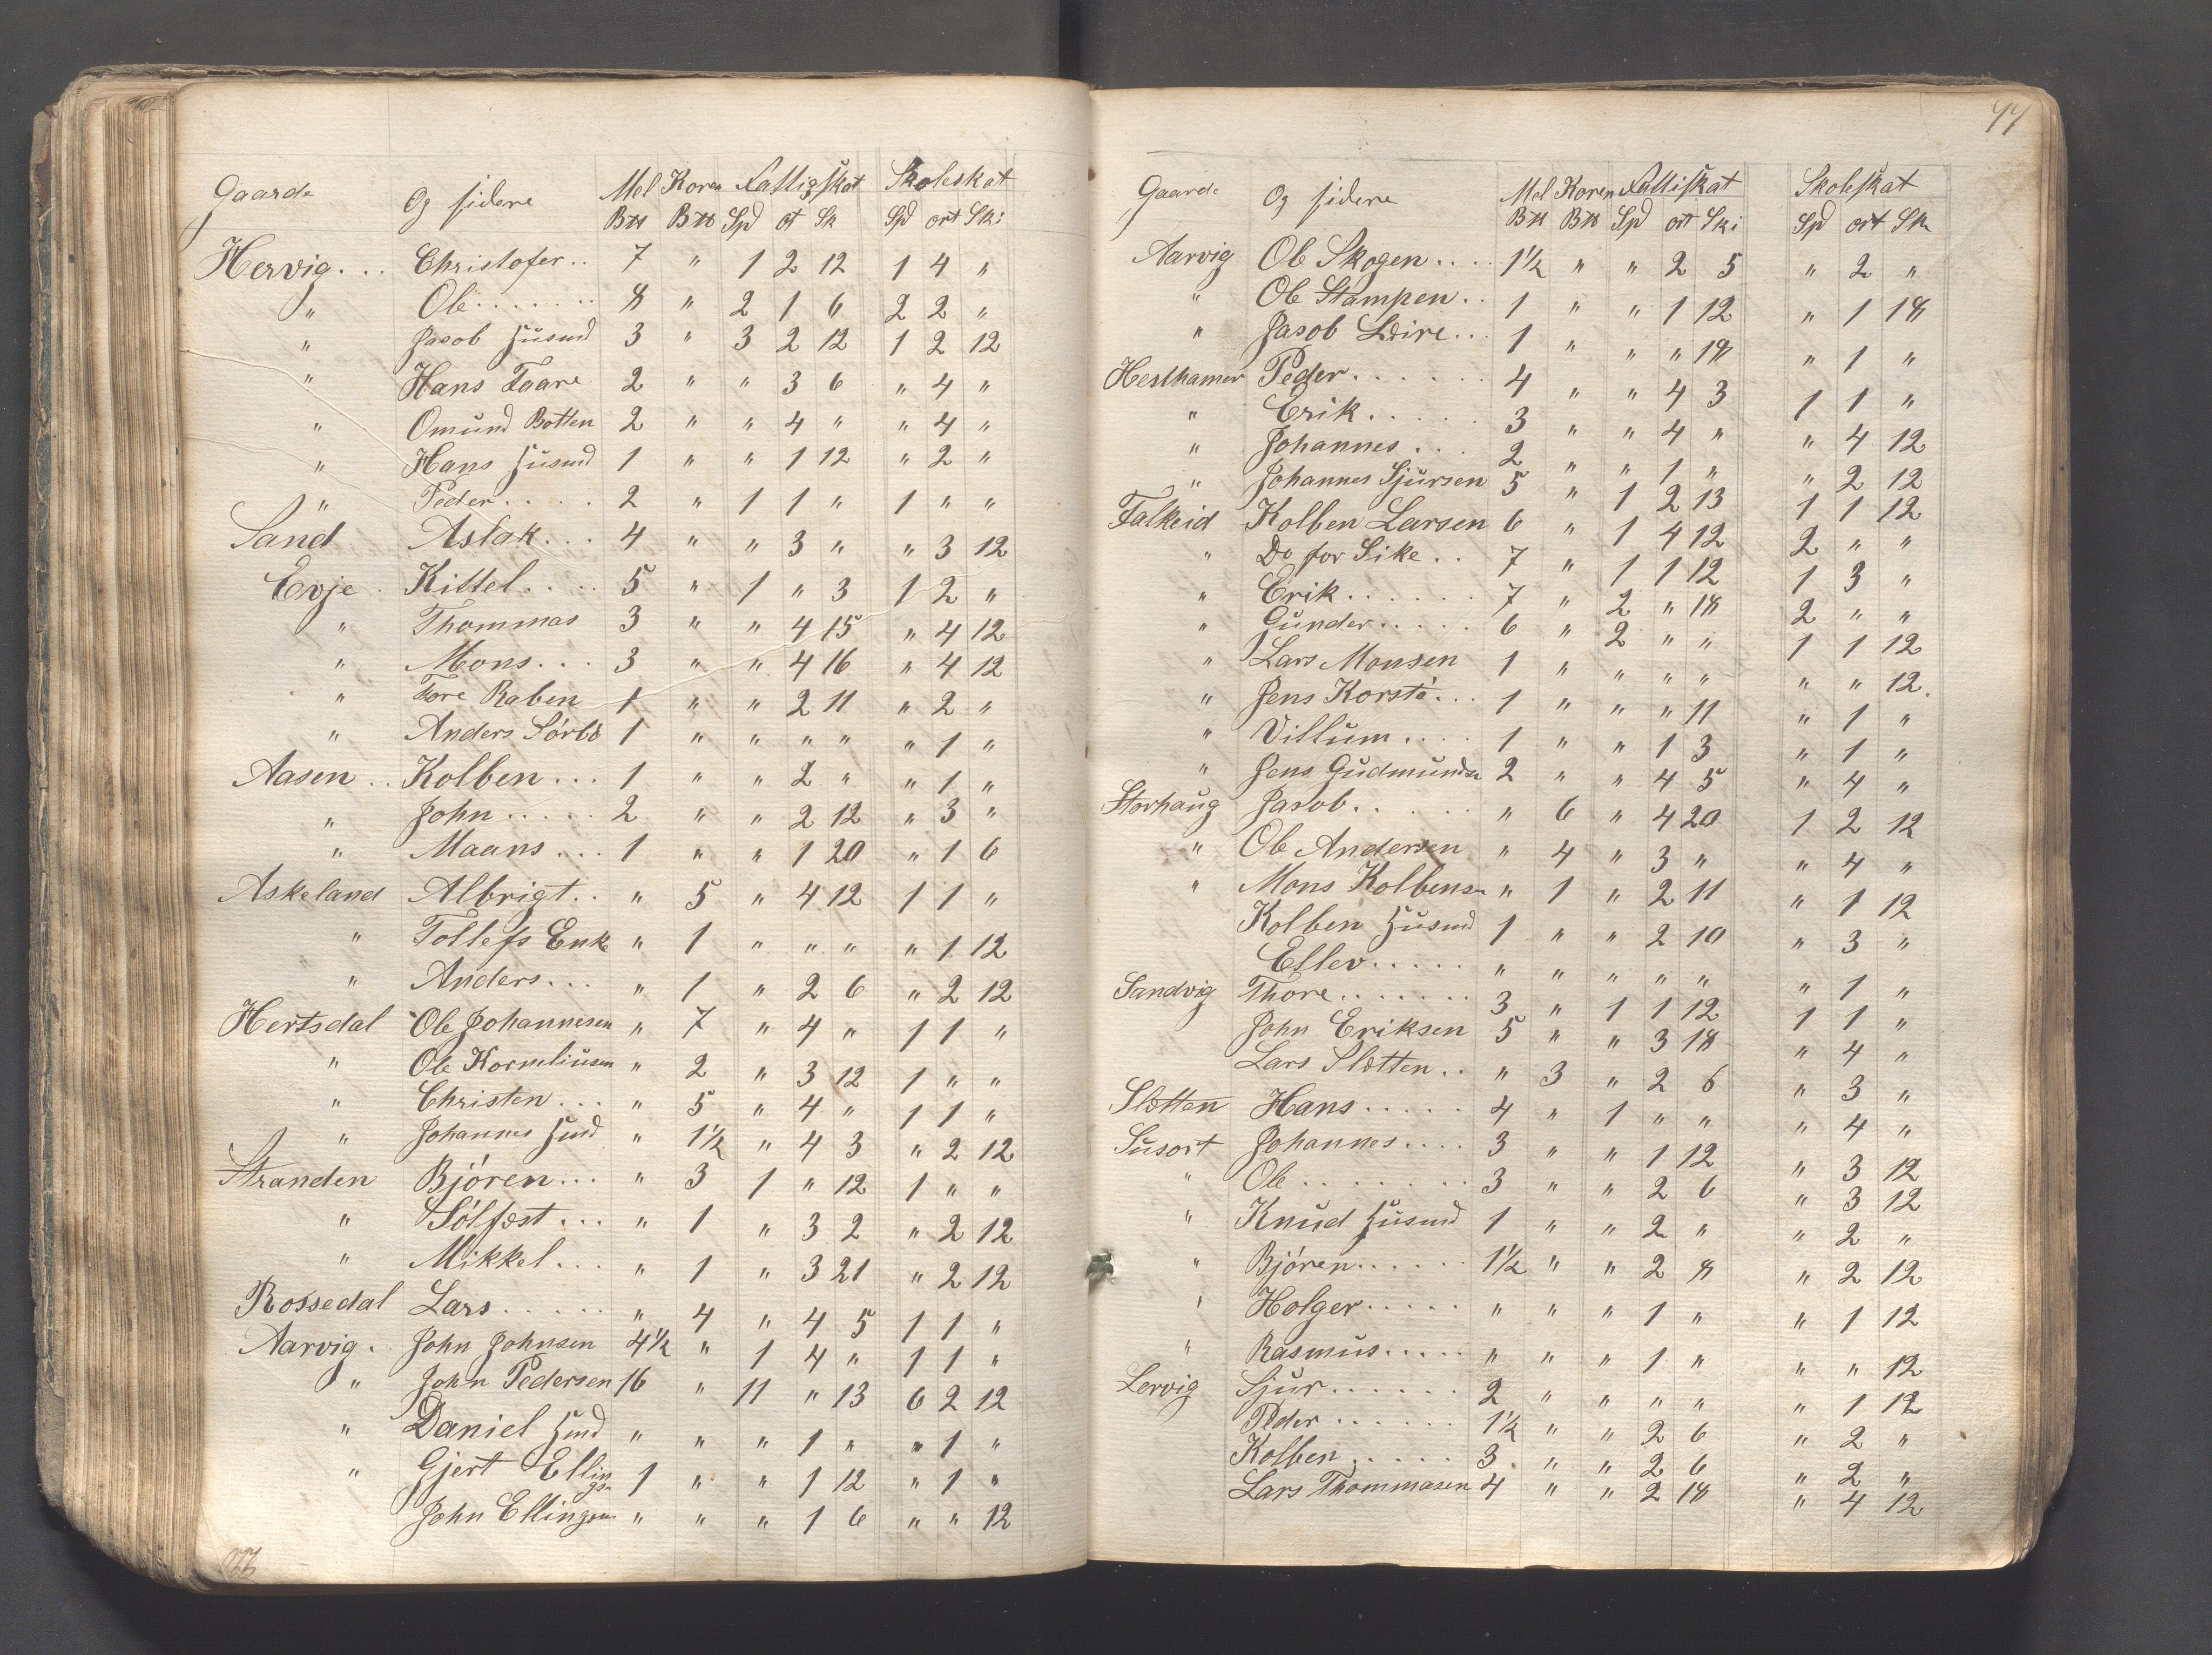 Gaarde Og sidere Mel Koren Fattigskat Skoleskat
B℔ B℔ Spd ot Sk Spd ort Ski
Hervig... Christofer.. 7 " 1 2 12 1 4 "
" Ole....... 8 " 2 1 6 2 2 "
" Jacob Husmd 3 " 3 2 12 1 2 12
" Hans Taare 2 " " 3 6 " 4 "
" Omund Botten 2 " " 4 " " 4 "
" Hans Husmd 1 " " 1 12 " 2 "
" Peder..... 2 " 1 1 " 1 " "
Sand Aslak... 4 " " 3 " " 3 12
Evje Kittel.... 5 " 1 " 3 1 2 "
" Thommas 3 " " 4 15 " 4 12
" Mons... 3 " " 4 16 " 4 12
" Tore Raben 1 " " 2 11 " 2 "
" Anders Sörbö 1 " " " " " 1 "
Aasen.. Kolben... 1 " " 2 " " 1 "
" John..... 2 " " 2 12 " 3 "
" Maans... 1 " " 1 20 " 1 6
Askeland Albrigt.. " 5 " 4 12 1 1 "
" Tollefs Enke " 1 " " " " 1 12
" Anders... " 1 " 2 6 " 2 12
Hertsdal Ole Johannesen " 7 " 4 " 1 1 "
" Ole Korneliusen " 2 " 3 12 1 " "
" Christen... " 5 " 4 " 1 1 "
" Johannes Hmd " 1½ " 4 3 " 2 12
Stranden Björen... " 3 1 " 12 1 " "
" Sölfæst... " 1 " 3 2 " 2 12
" Mikkel... " 1 " 3 21 " 2 12
Rossedal Lars..... " 4 " 4 5 1 1 "
Aarvig. John Johnsen 4½ " 1 4 " 1 1 "
" John Pedersen 16 " 11 " 13 6 2 12
" Daniel Hmd " " " 1 " " 1 "
" Gjert Ellingsn 1 " " 1 12 " 1 "
John Ellingsen " " " 1 6 " " 12
97
Gaarde Og sidere Mel Koren Fattiskat Skoleskat
B℔ B℔ Spd ort Ski Spd ort Sk
Aarvig Ole Skogen.... 1½ " " 2 5 " 2 "
" Ole Stampen.. 1 " " 1 12 " 1 18
" Jacob Leire... 1 " " " 18 " 1 "
Hesthamer Peder...... 4 " " 4 3 1 1 "
" Erik..... 3 " " 4 " " 4 12
" Johannes... 2 " " 1 " " 2 12
" Johannes Sjursen 5 " 1 2 13 1 1 12
Falkeid Kolben Larsen 6 " 1 4 12 2 " "
" Do for Sike.. 7 " 1 1 12 1 3 "
" Erik...... 7 " 2 " 18 2 " "
" Gunder..... 6 " 2 " " 1 1 12
" Lars Monsen 1 " " " " " " 12.
" Jens Korstö... 1 " " " 11 " 1 "
" Villum.... 1 " " 1 3 " 1 "
" Jens Gudmundsn 2 " " 4 5 " 4 "
Storhaug Jacob...... " 6 " 4 20 1 2 12
" Ole Andersen " 4 " 3 " " 4 "
" Mons Kolbensn " 1 " 2 11 " 1 12
Kolben Husmd 1 " " 2 10 " 3 "
Ellev..... " " " " " " 1 "
Sandvig Thore....... 3 " 1 1 12 1 1 "
John Eriksen 5 " " 3 18 " 4 "
Lars Sletten.. " 3 " 2 6 " 3 "
Sletten Hans..... 4 " 1 " " " 4 "
Susort Johannes.... 3 " " 1 12 " 3 12
" Ole........ 3 " " 2 6 " 3 12
" Knud Husmd 1 " " 2 " " 2 "
" Björen...... 1½ " " 2 8 " 2 12
" Holger..... " " " 1 " " 1 12
" Rasmus..... " " " 1 " " " 12
Lervig Sjur...... 2 " " " " " 1 12
Peder...... 1½ " " 2 6 " 2 "
Kolben..... 3 " " 2 6 " 2 "
Lars Thommasen 4 " " 2 18 " 4 12